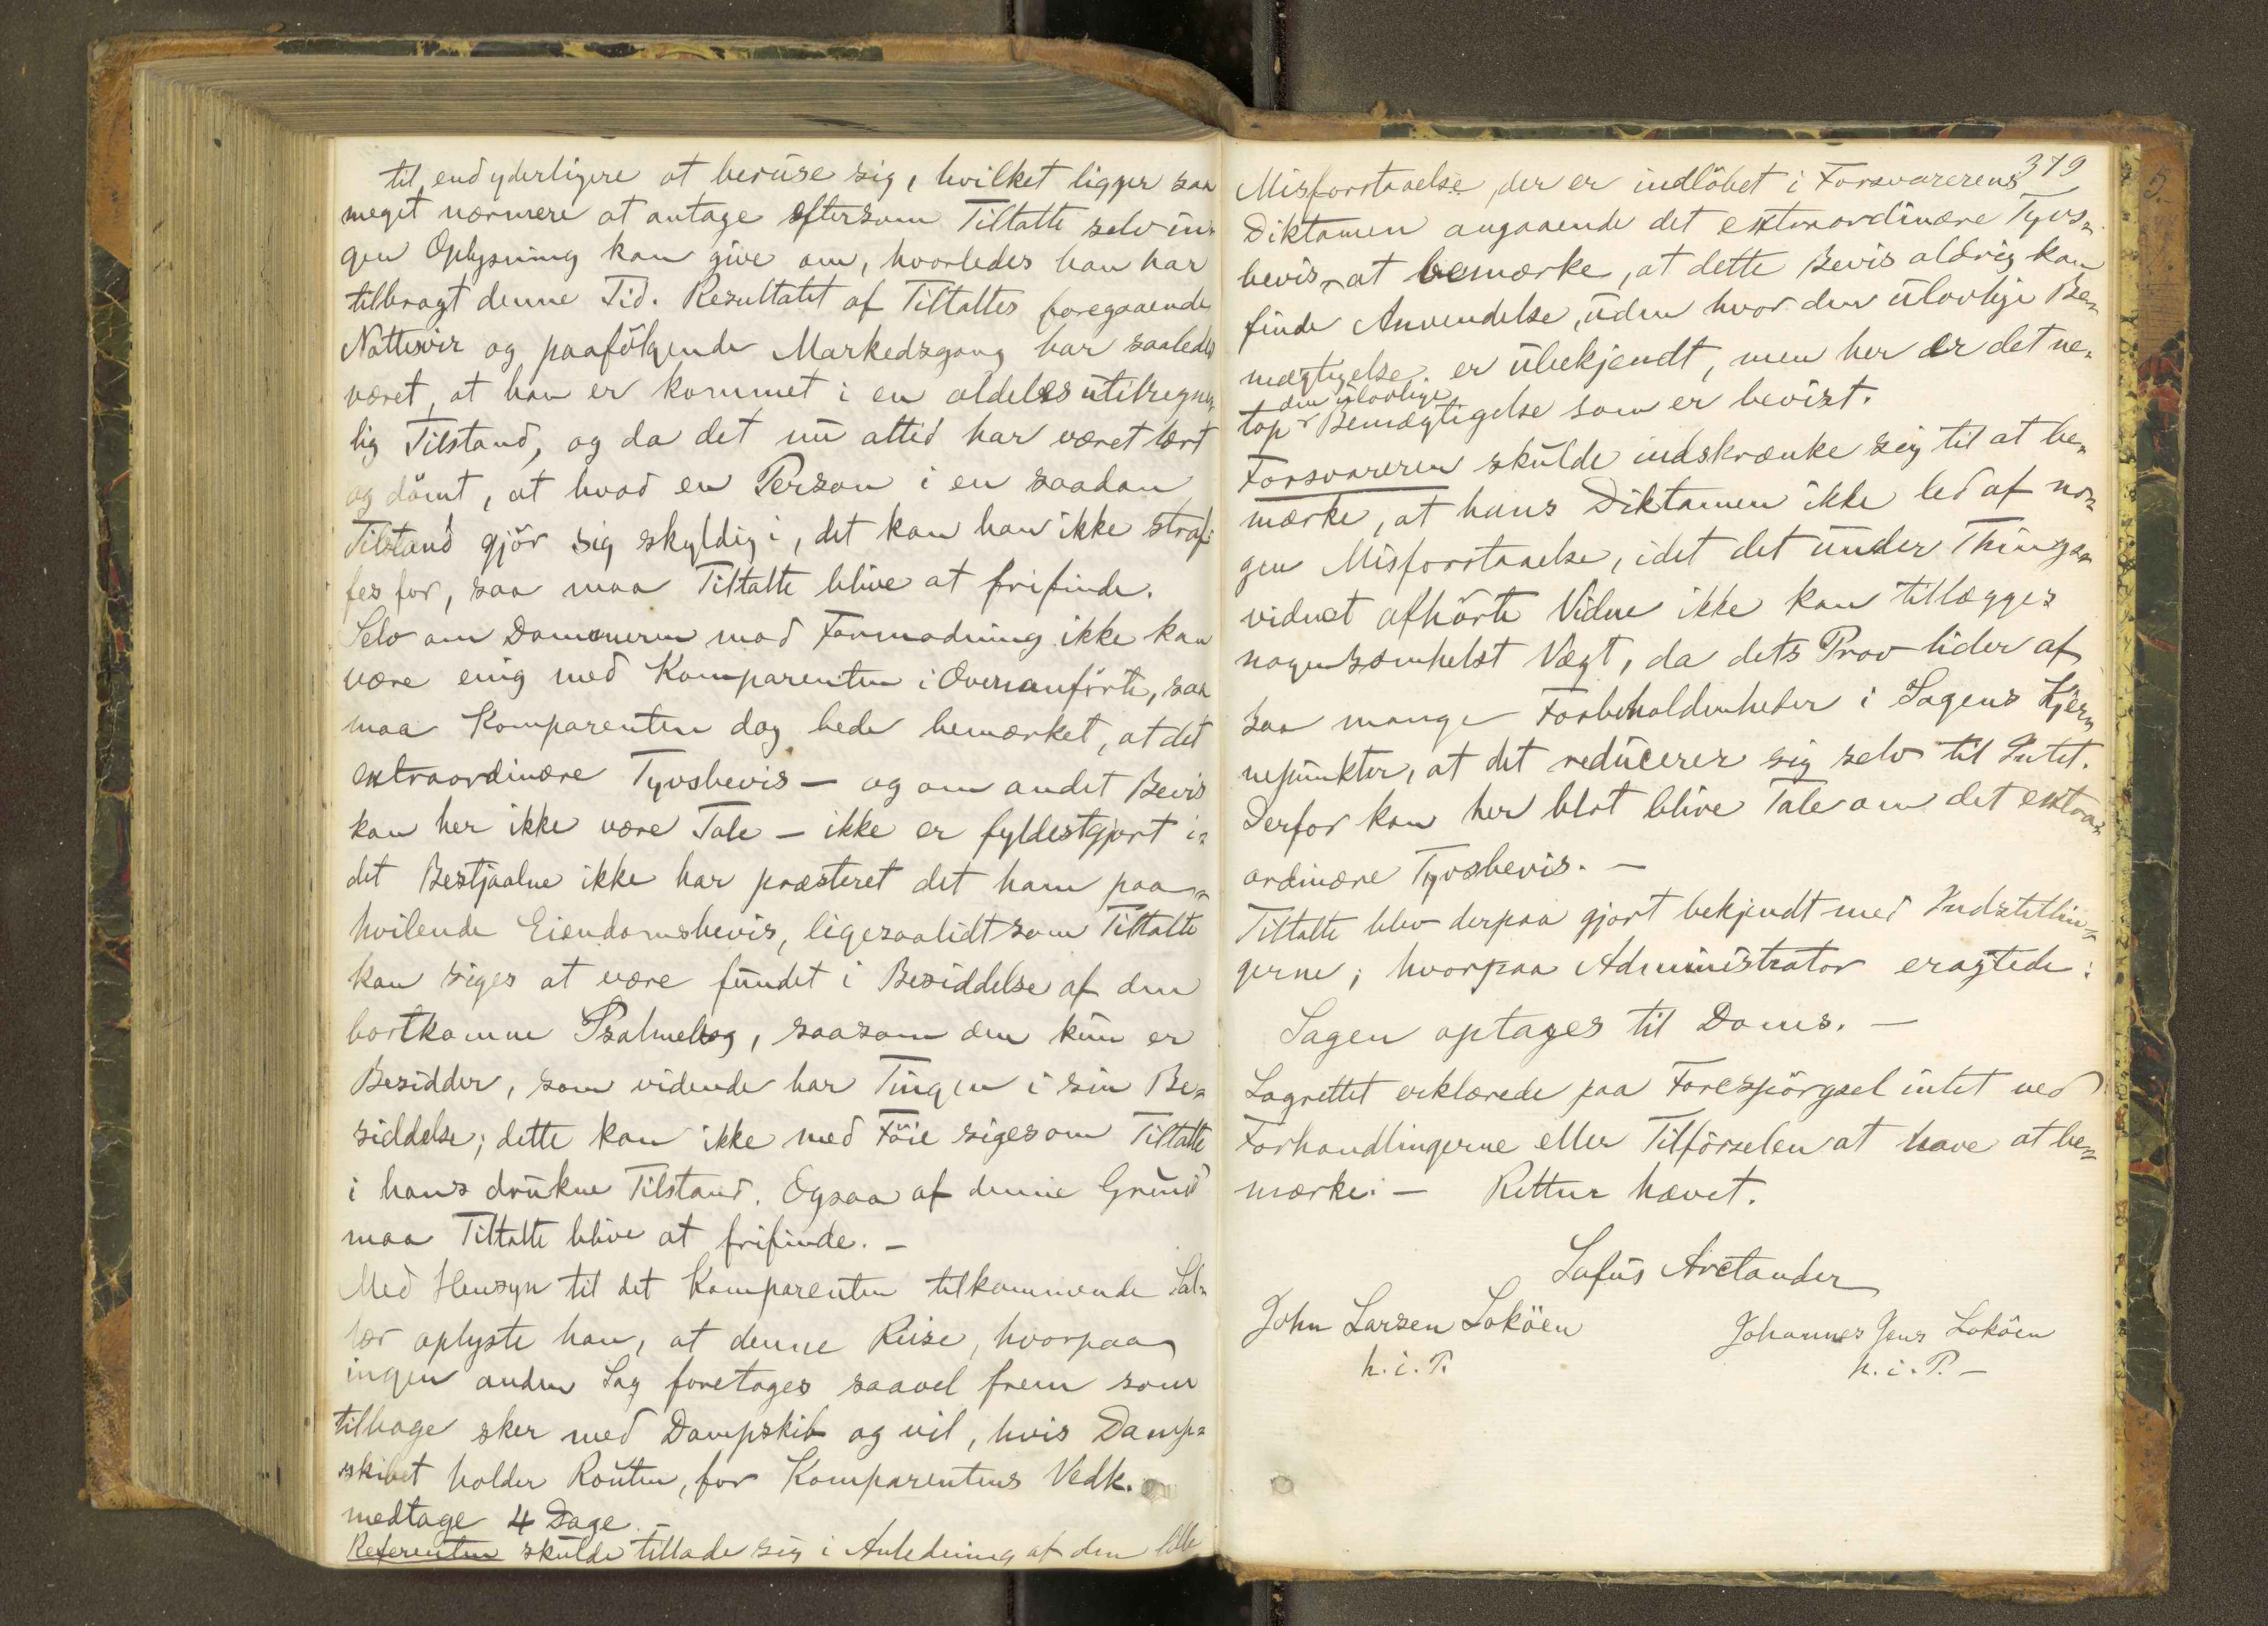 til end yderligere at beruse sig, hvilket ligger saa
meget nærmere at antage eftersom Tiltalte selv in-
gen Oplysning kan give om, hvorledes han har
tilbragt denne Tid. Resultatet af Tiltaltes foregaaende
Nattesvir og paafölgende Markedsgang har saaledes
været, at han er kommet i en aldeles utilregne-
lig Tilstand, og da det nu altid har været lært
og dömt, at hvad en Person i en saadan
Tilstand gjör sig skyldig i, det kan han ikke straf-
fes for, saa maa Tiltalte blive at frifinde.
Selv om Domeneren mod Formodning ikke kan
være enig med Komparenten i Ovenanförte, saa
maa Komparenten dog bede bemærket, at det
extraordinære Tyvsbevis – og om andet Bevis
kan her ikke være Tale – ikke er fyldestgjort i-
det Bestjaalne ikke har præsteret det ham paa-
hvilende Eiendomsbevis, ligesaalidt som Tiltalte
kan siges at være fundet i Besiddelse af den
bortkomne Psalmebog, saasom den kun er
Besidder, som vidende har Tingen i sin Be-
siddelse; dette kan ikke med Föie siges om Tiltalte
i hans drukne Tilstand. Ogsaa af denne Grund
maa Tiltalte blive at frifinde. –
Med Hensyn til det Komparenten tilkommende Sal-
lær oplyste han, at denne Reise, hvorpaa
ingen anden Sag foretages saavel frem som
tilbage sker med Dampskib og vil, hvis Damp-
skibet holder Routen, for Komparentens Vedk.
medtage 4 Dage. –
Referenten skulde tillade sig i Anledning af den lille
379
Misforstaaelse, der er indlöbet i Forsvarerens
Diktamen angaaende det extraordinære Tyvs-
bevis, at bemærke, at dette Bevis aldrig kan
finde Anvendelse, uden hvor den ulovlige Be-
mægtigelse er ubekjendt, men her er det ne-
den ulovlige
top Bemægtigelse som er bevist.
Forsvareren skulde indskrænke sig til at be-
mærke, at hans Diktamen ikke led af no-
gen Misforstaaelse, idet det under Things-
vidnet afhörte Vidne ikke kan tillægges
nogensomhelst Vægt, da dets Prov lider af
saa mange Forbeholdenheder i Sagens Kjer-
nepunkter, at det reducerer sig selv til Intet.
Derfor kan her blot blive Tale om det extra-
ordinære Tyvsbevis. –
Tiltalte blev derpaa gjort bekjendt med Indstillin-
gerne; hvorpaa Administrator eragtede:
Sagen optages til Doms. –
Lagrettet erklærede paa Forespörgsel intet ved
Forhandlingerne eller Tilförselen at have at be-
mærke. – Retten hævet.
Sofus Arctander
John LarsenLoköen Johannes Jens Loköen
h. i. P. h. i. P. –